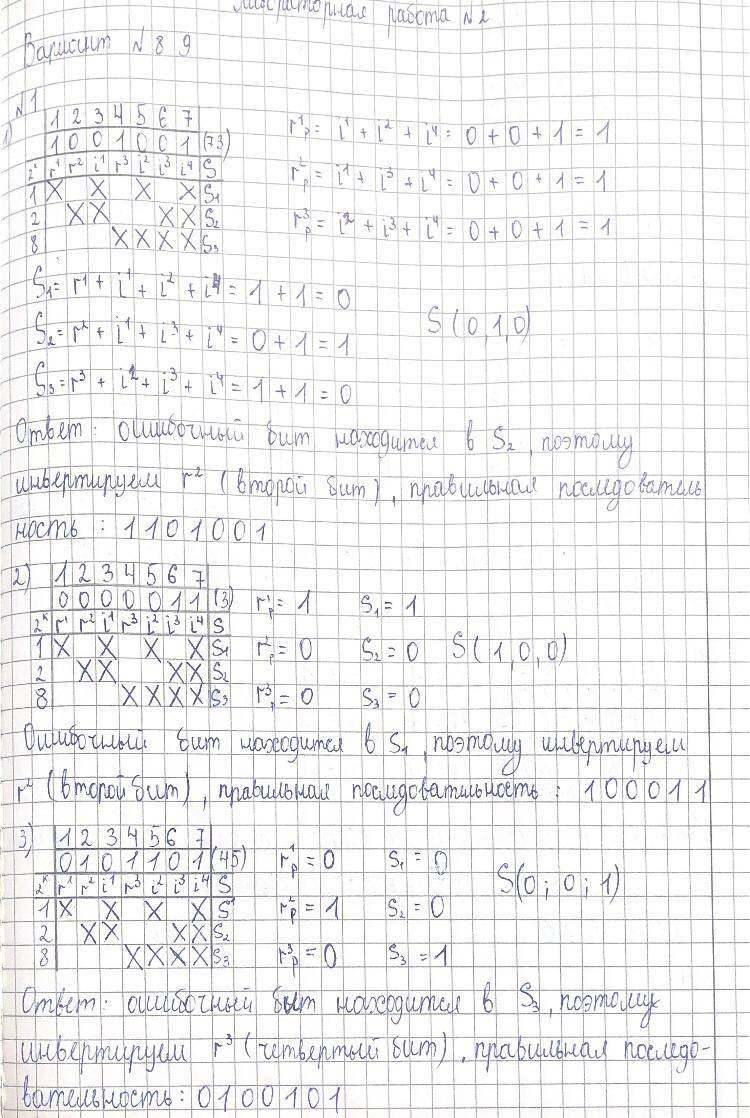 Лабораторная работа №2
Вариант №89
№1
1) 1 2 3 4 5 6 7
1 0 0 1 0 0 1 (73)
2ˣ r¹ r² i¹ r³ i² i³ i⁴ S
1 X X X X S₁
2 X X X X S₂
8 X X X X S₃
r¹ₚ = i¹ + i² + i⁴ = 0 + 0 + 1 = 1
r²ₚ = i¹ + i³ + i⁴ = 0 + 0 + 1 = 1
r³ₚ = i² + i³ + i⁴ = 0 + 0 + 1 = 1
S₁ = r¹ + i¹ + i² + i⁴ = 1 + 1 = 0
S₂ = r² + i¹ + i³ + i⁴ = 0 + 1 = 1
S(0,1,0)
S₃ = r³ + i² + i³ + i⁴ = 1 + 1 = 0
Ответ: ошибочный бит находится в S₂, поэтому
инвертируем r² (второй бит), правильная последователь
ность: 1101001
2) 1 2 3 4 5 6 7
0 0 0 0 0 1 1 (3)
2ˣ r¹ r² i¹ r³ i² i³ i⁴ S
1 X X X X S₁
2 X X X X S₂
8 X X X X S₃
r¹ₚ = 1 S₁ = 1
r²ₚ = 0 S₂ = 0 S(1,0,0)
r³ₚ = 0 S₃ = 0
Ошибочный бит находится в S₁, поэтому инвертируем
r² (второй бит), правильная последовательность: 100011
3) 1 2 3 4 5 6 7
0 1 0 1 1 0 1 (45)
2ˣ r¹ r² i¹ r³ i² i³ i⁴ S
1 X X X X S¹
2 X X X X S₂
8 X X X X S₃
r¹ₚ = 0 S₁ = 0
S(0; 0; 1)
r²ₚ = 1 S₂ = 0
r³ₚ = 0 S₃ = 1
Ответ: ошибочный бит находится в S₃, поэтому
инвертируем r³ (четвертый бит), правильная последо-
вательность: 0100101